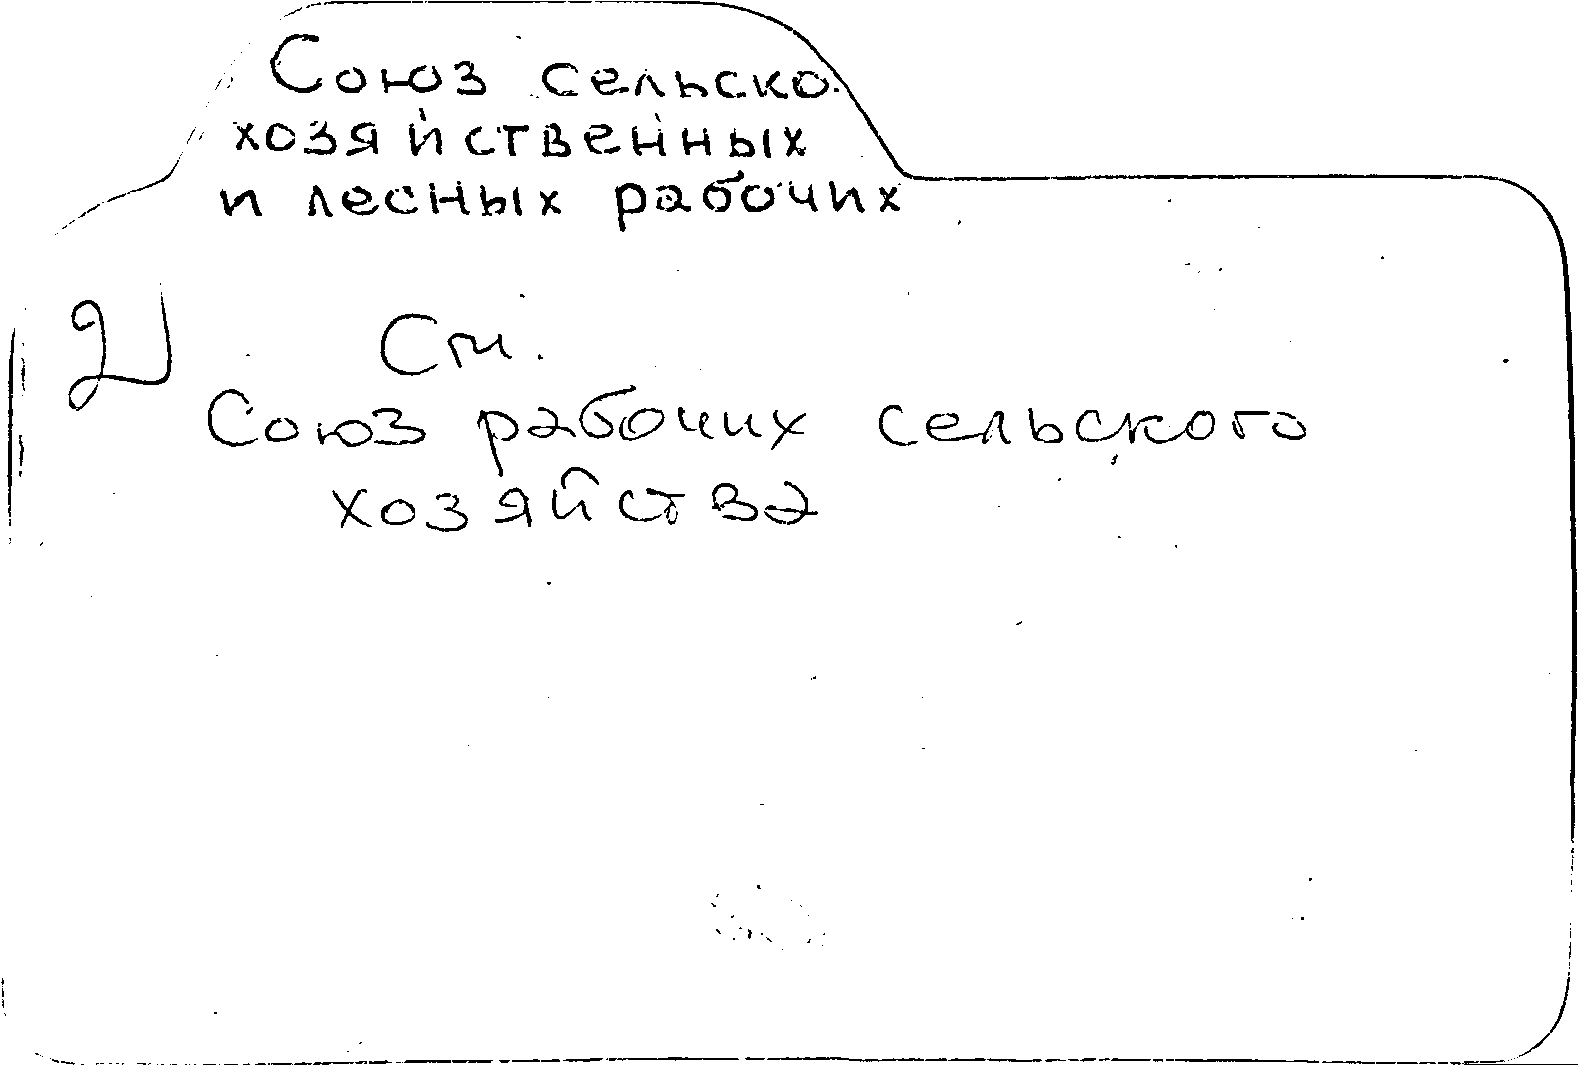 Союз сельско-
хозяйственных
и лесных рабочих
См.
Союз рабочих сельского
хозяйства